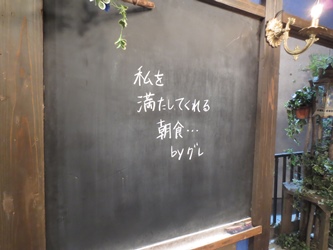 私を
満たしてくれる
朝食…
byグレ